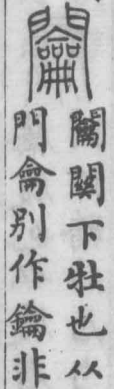 𨷲
𨷲關下牡也从
門龠別作鑰非